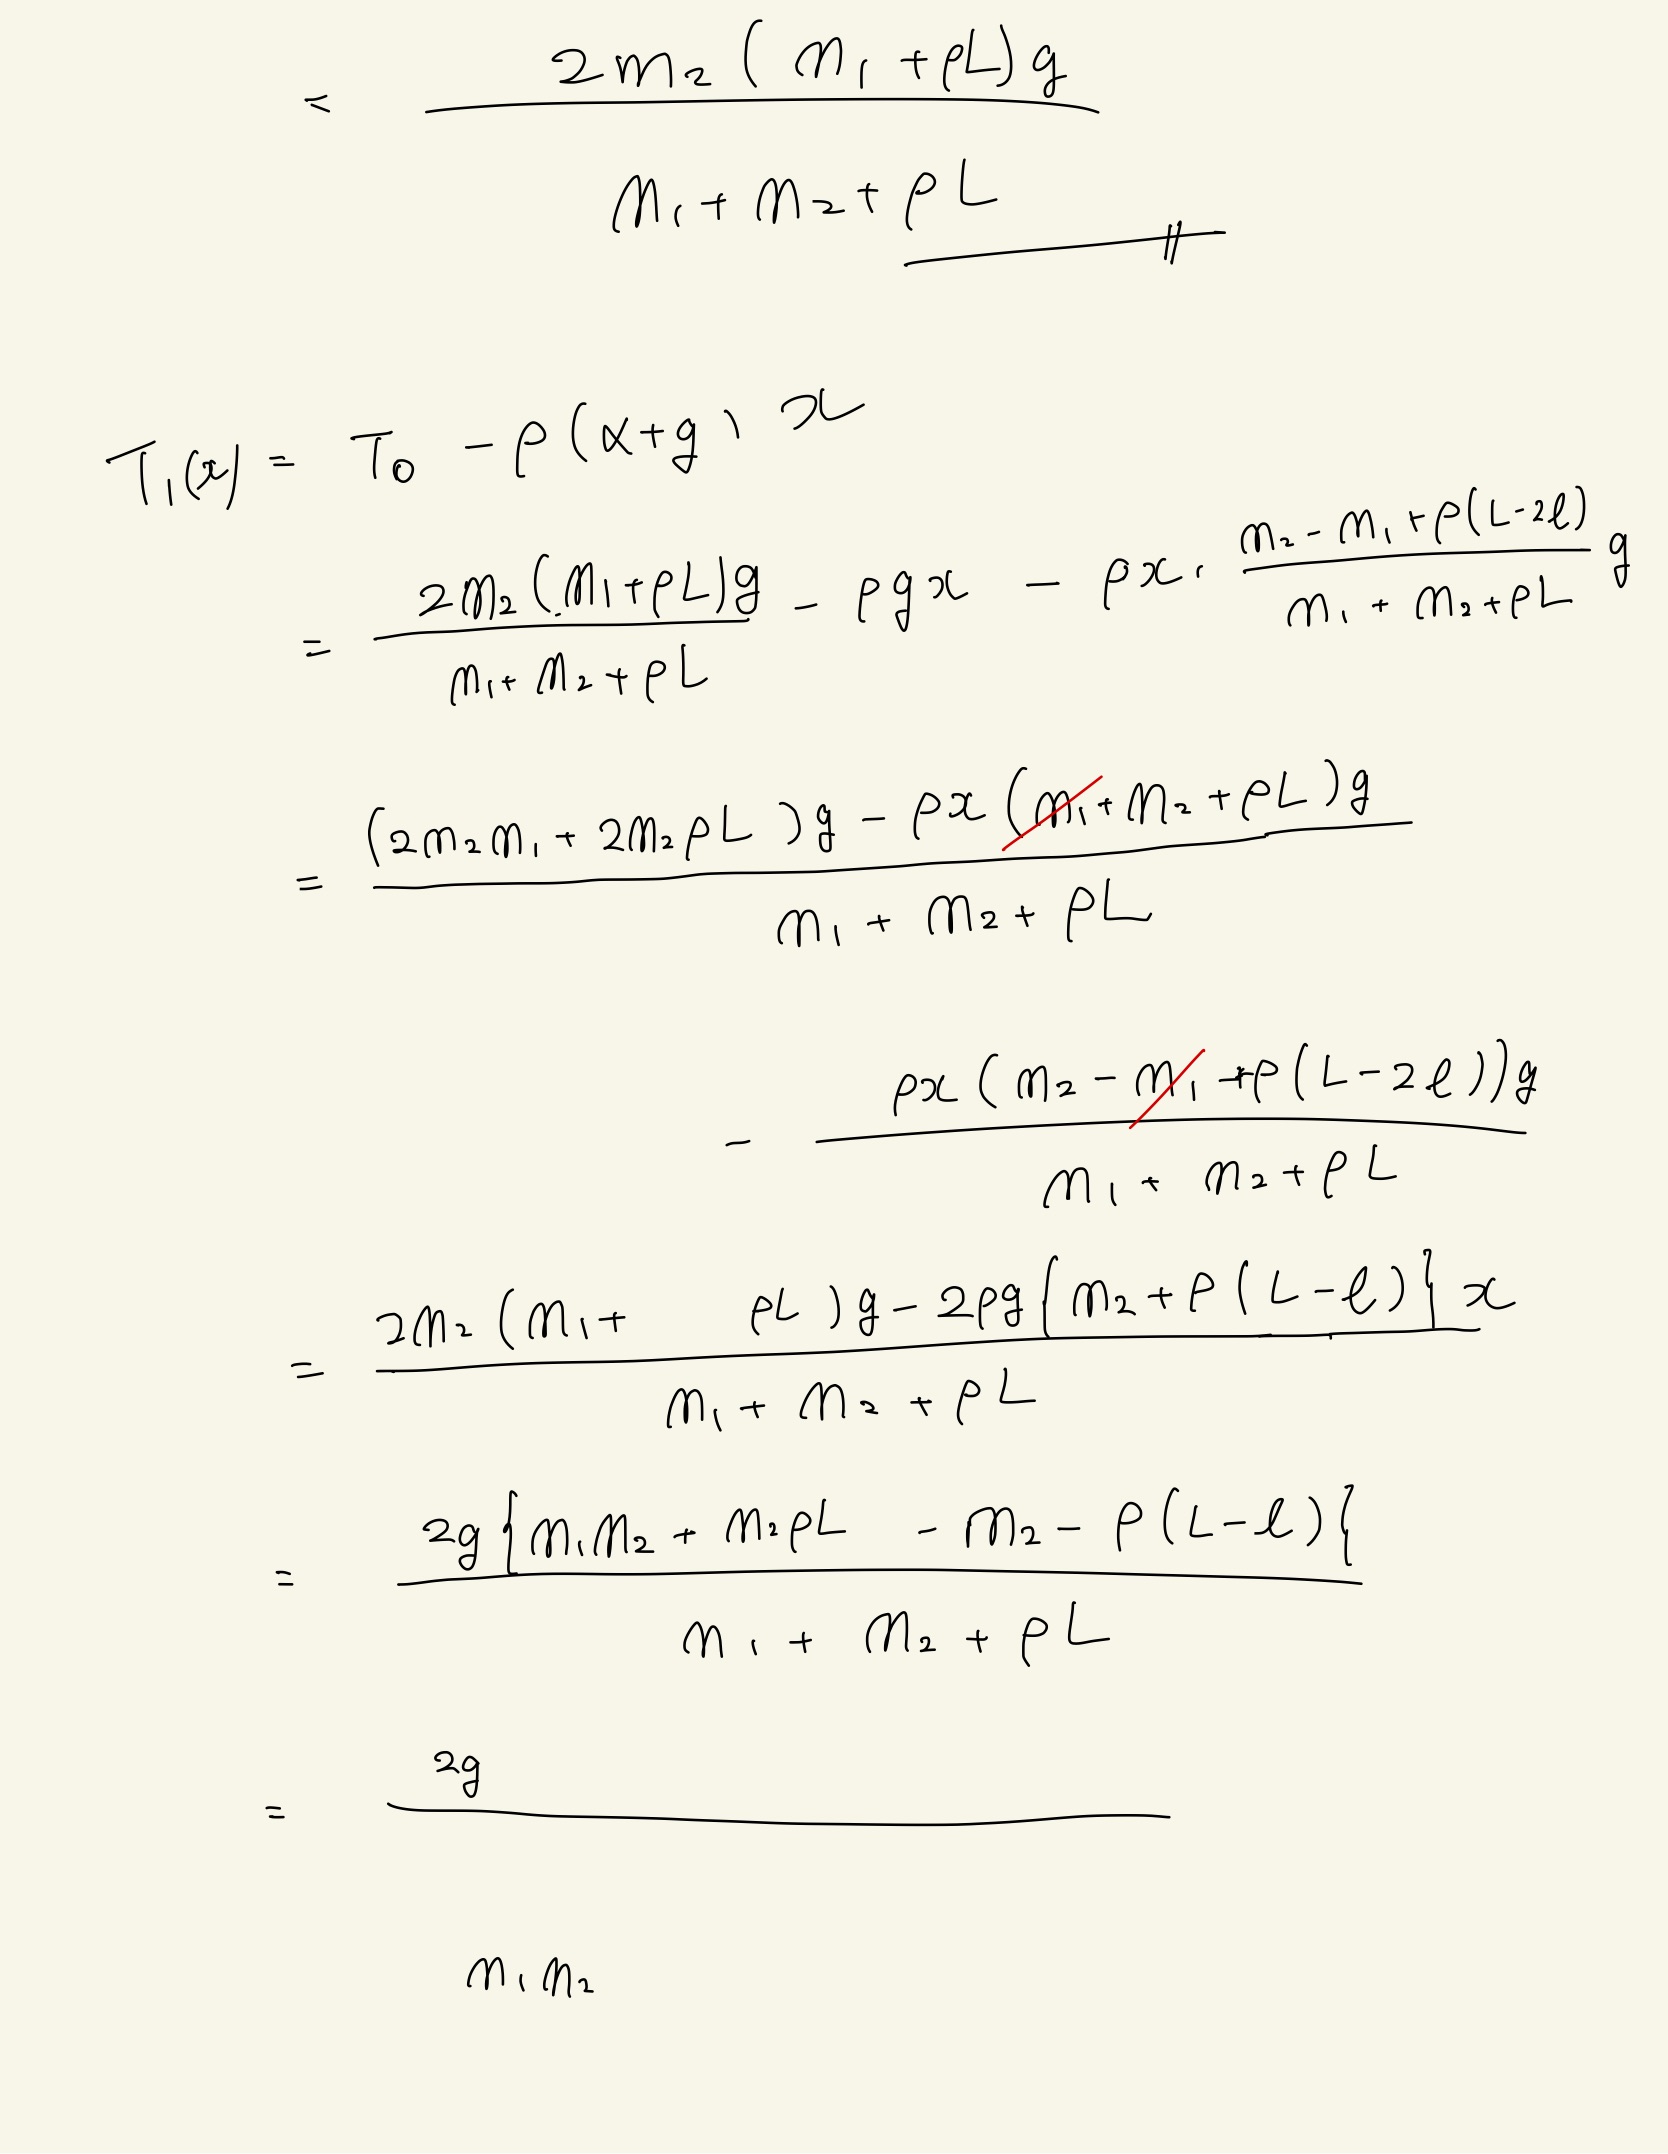 = 2m₂ ( m₁ + ρL) g
m₁ + m₂ + ρL
T₁(x) = T₀ - ρ (α+g) x
= 2m₂ (m₁+ρL)g / m₁+ m₂ + ρL - ρgx - ρx · m₂ - m₁ + ρ(L-2ℓ) / m₁ + m₂ + ρL g
= (2m₂m₁ + 2m₂ρL )g - ρx (m₁+ m₂ + ρL )g
m₁ + m₂ + ρL
- ρx (m₂ - m₁ +ρ(L-2ℓ))g
m₁ + m₂ + ρL
= 2m₂ (m₁ + ρL )g - 2ρg{m₂ + ρ (L-ℓ)} x
m₁ + m₂ + ρL
= 2g {m₁m₂ + m₂ρL - m₂ - ρ(L-ℓ)}
m₁ + m₂ + ρL
= 2g
m₁m₂